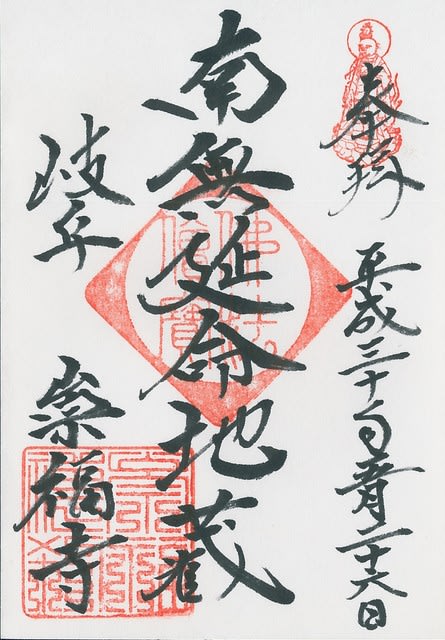 奉拝
平成三十 月二十六日
南無延命地蔵
佛法
僧寶
岐阜
崇福寺